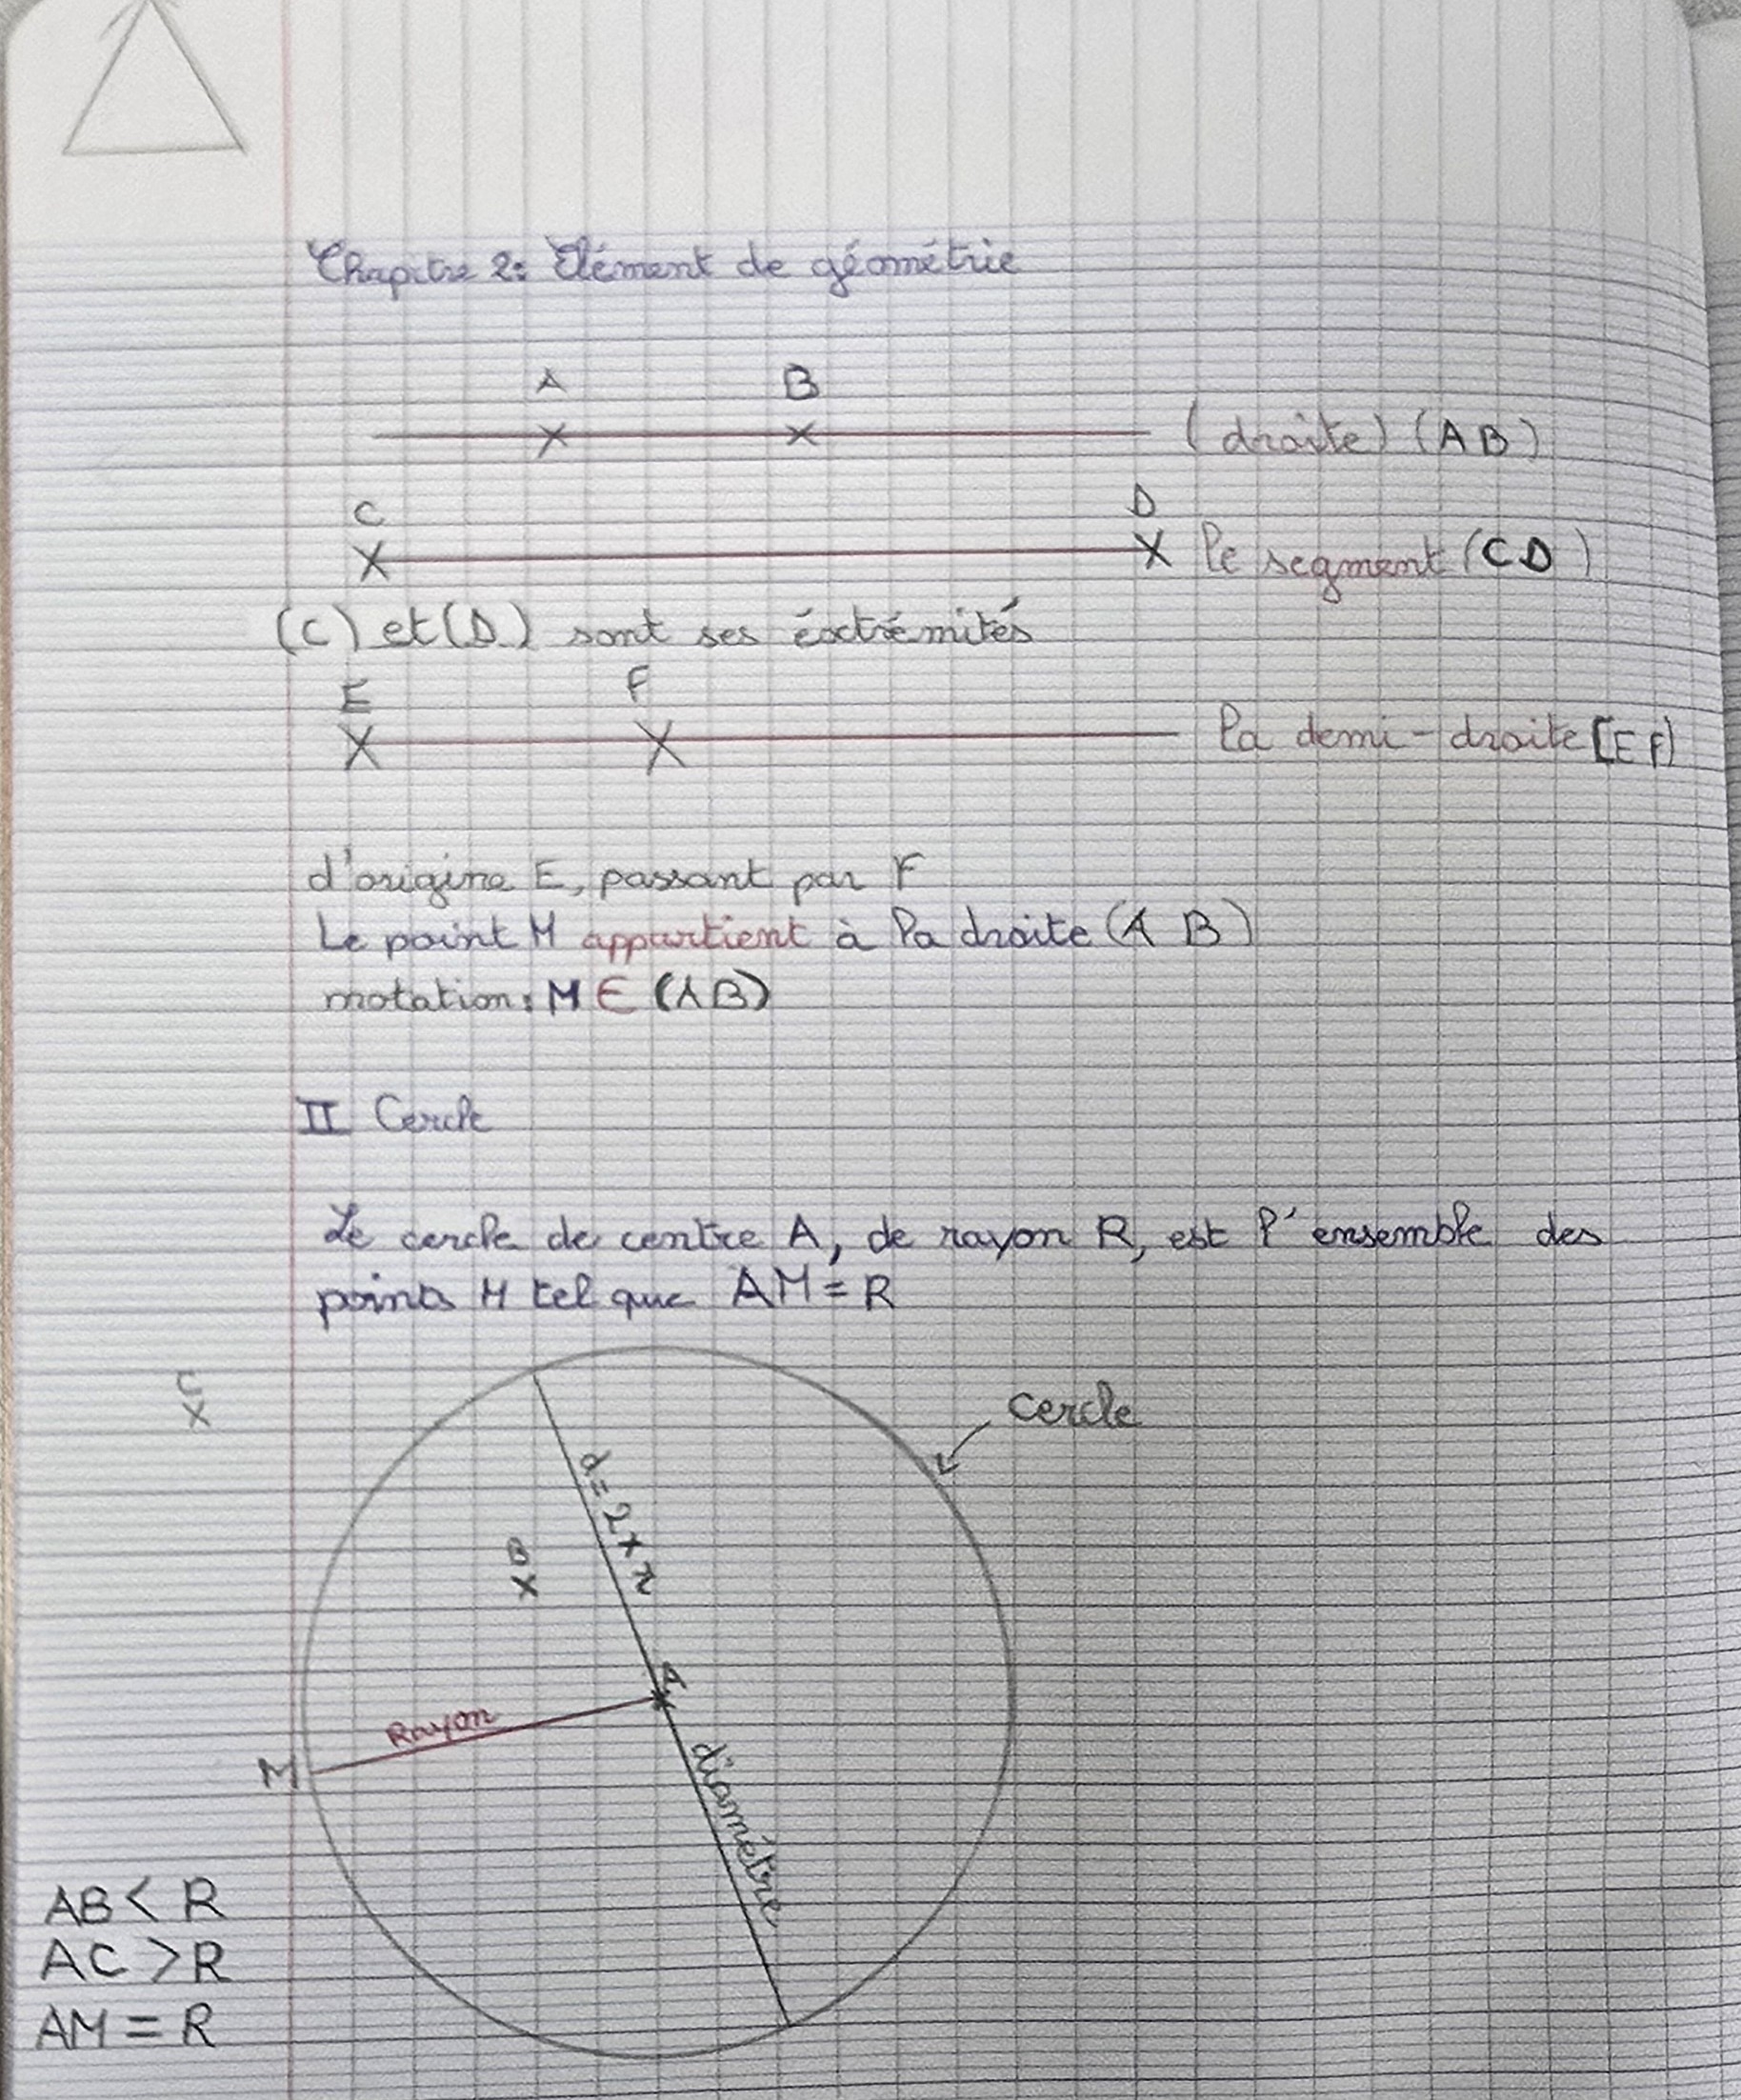 Chapitre 2: Elément de géométrie
A B
(droite) (AB)
C D
le segment (CD)
(C) et (D) sont ses éxtrémités
E F
la demi-droite [EF)
d'origine E, passant par F
Le point M appartient à la droite (AB)
notation: M ∈ (AB)
II Cercle
Le cercle de centre A, de rayon R, est l'ensemble des
points M tel que AM = R
C
cercle
d = 2 x r
B
A
Rayon
M
diamétre
AB < R
AC > R
AM = R